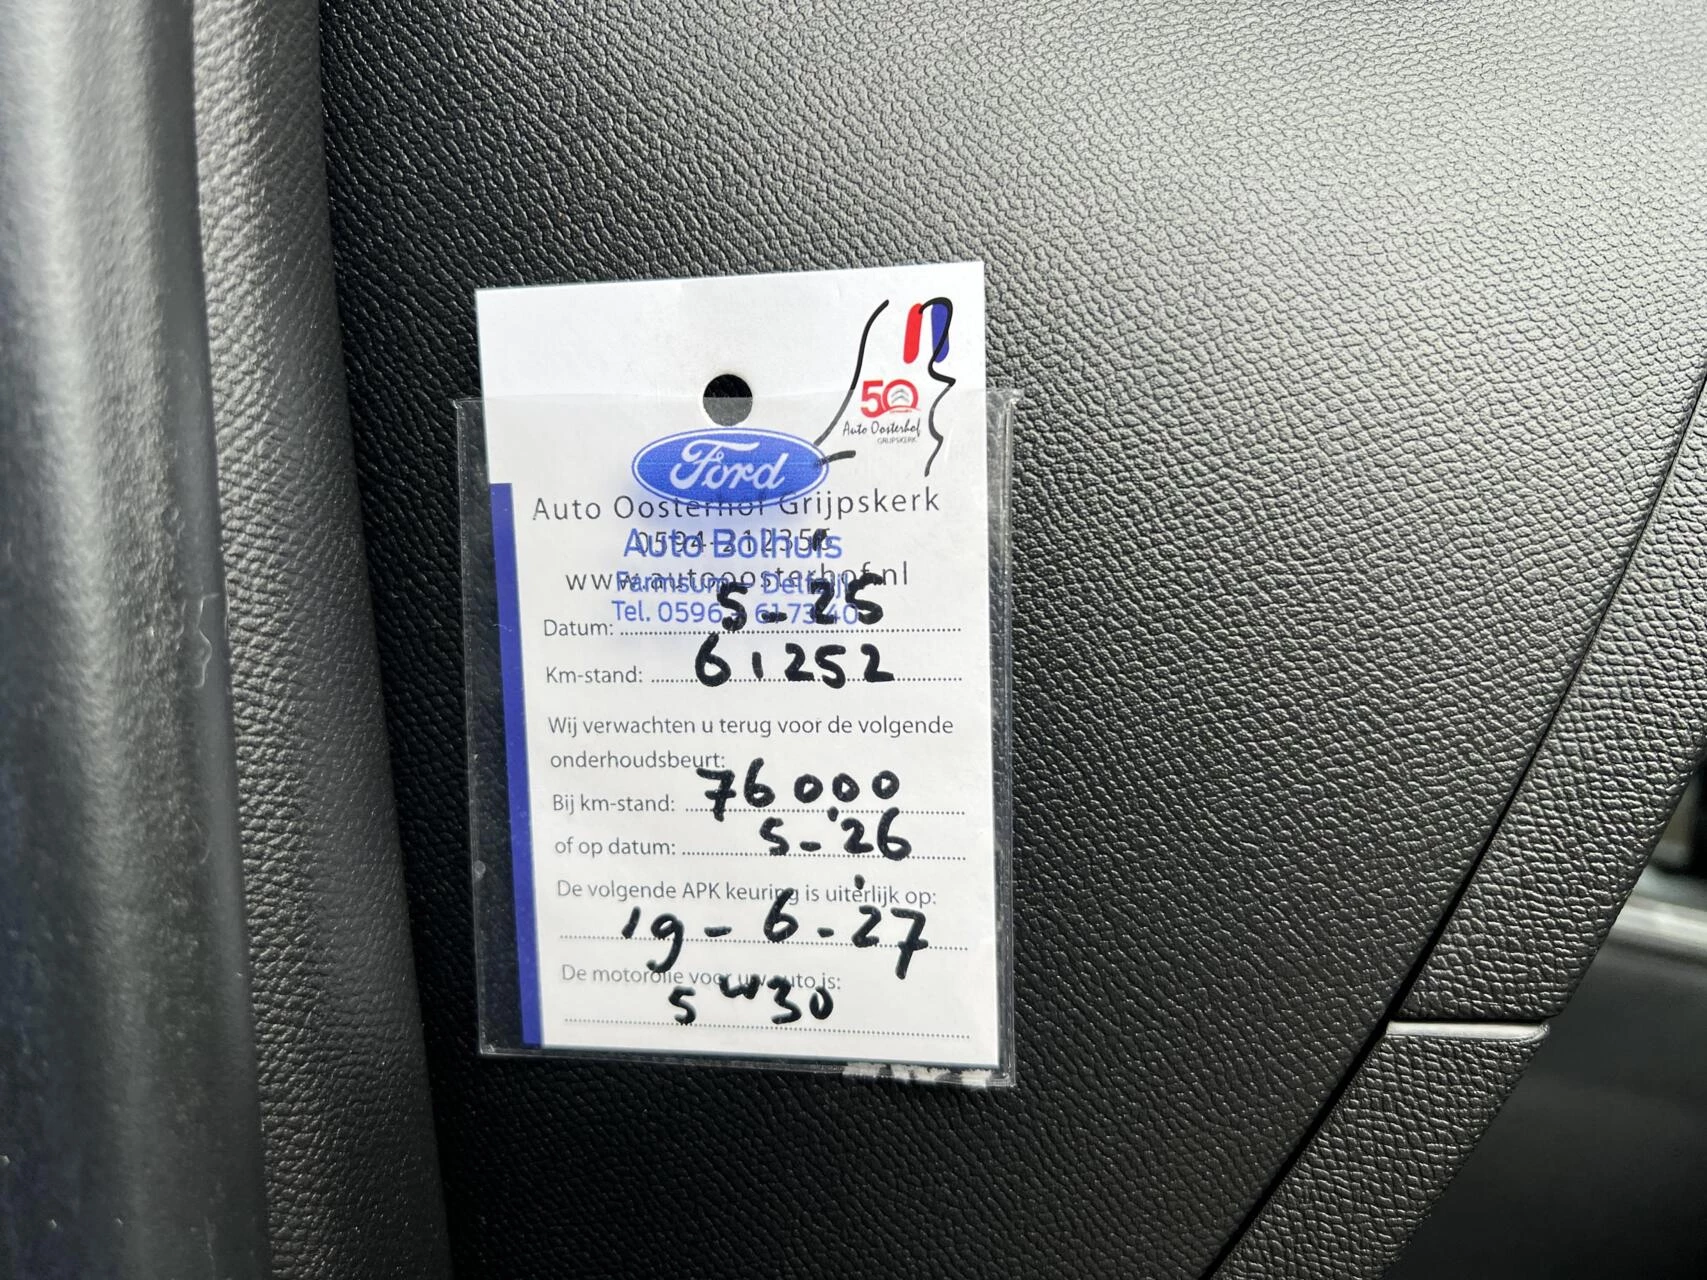 50
Auto Oosterhof
GRIJPSKERK
Ford
Auto Oosterhof Grijpskerk
Auto Bolhuis
www.autooosterhof.nl
Farmsum - Delfzijl
Tel. 0596 - 61 73 40
Datum: 5-25
Km-stand: 61252
Wij verwachten u terug voor de volgende
onderhoudsbeurt:
Bij km-stand: 76000
of op datum: 5-26
De volgende APK keuring is uiterlijk op:
19-6-27
De motorolie voor uw auto is:
5w30